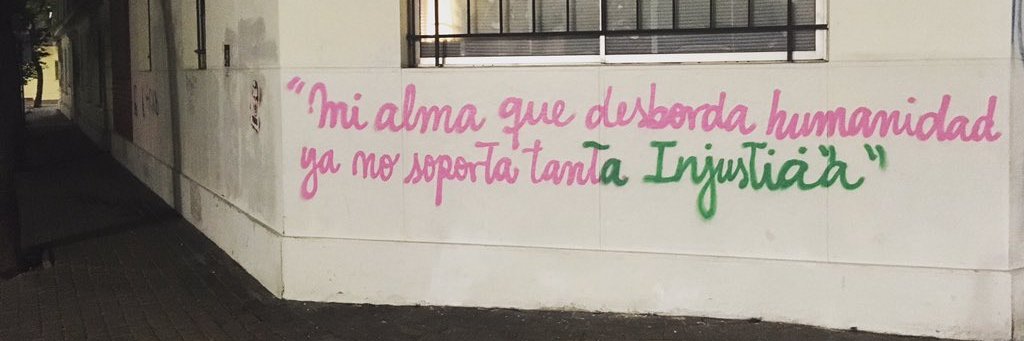 "mi alma que desborda humanidad
ya no soporta tanta Injusticia"